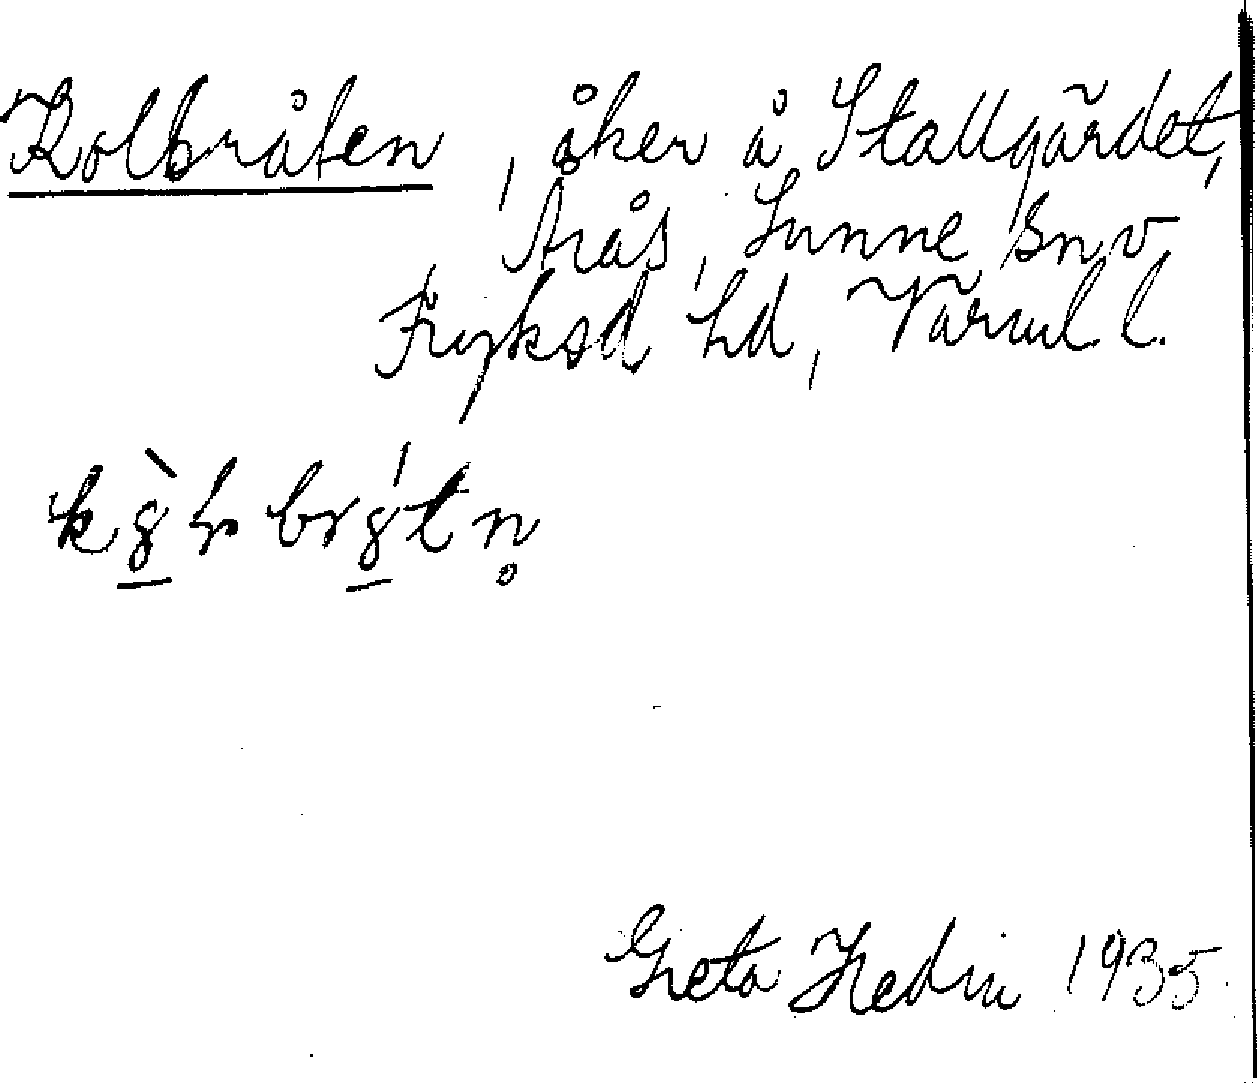 Kolbråten, åker å Stallgärdet,
Årås, Sunne sn, v
Fryksd hd, Värml. l.
Greta Hedin 1935.